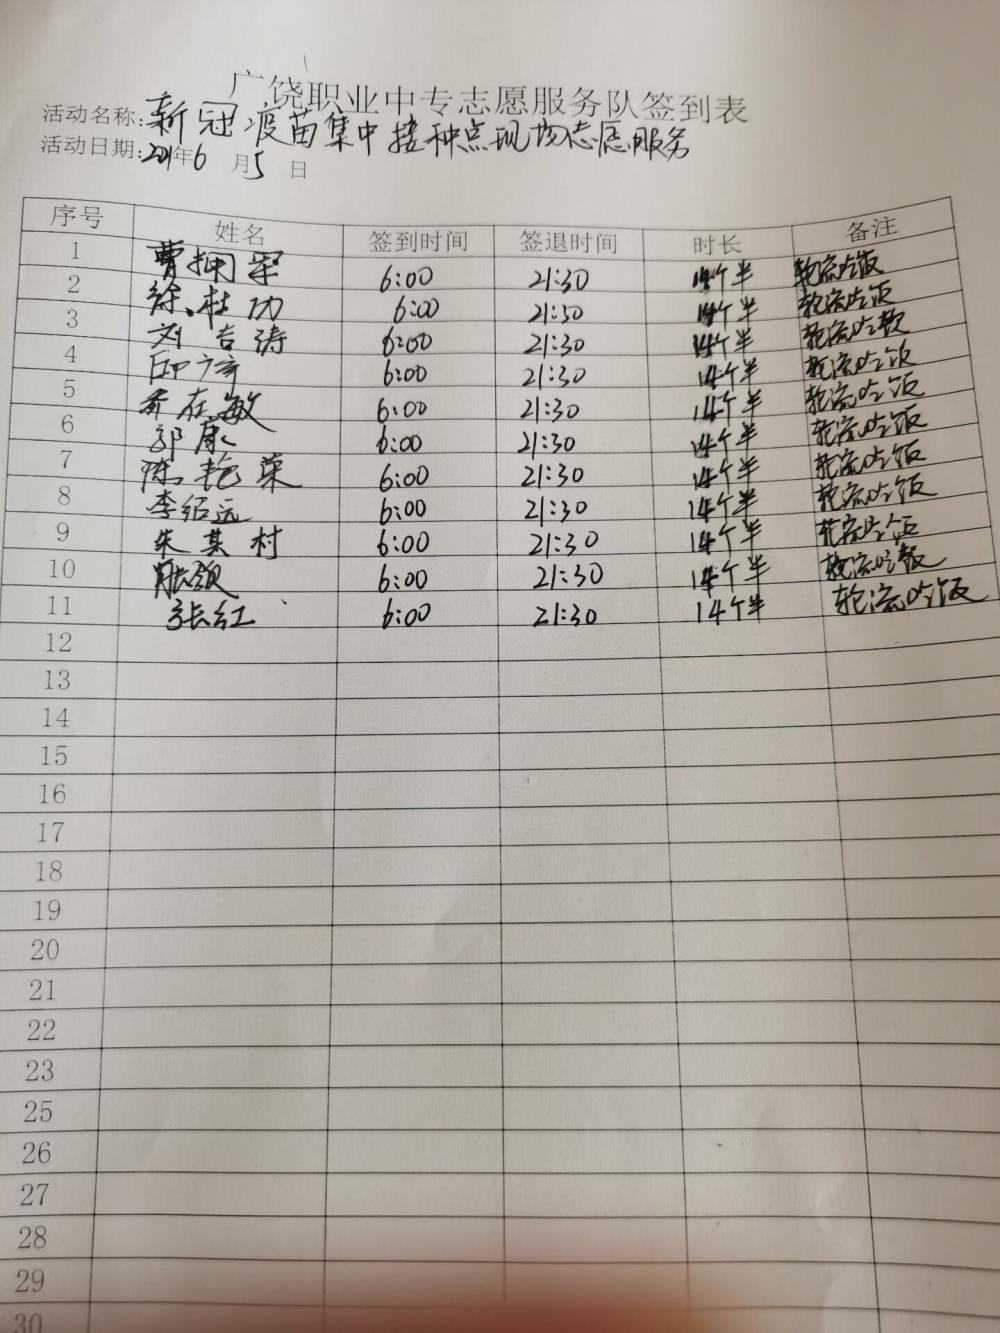 广饶职业中专志愿服务队签到表
活动名称:新冠疫苗集中接种点现场志愿服务
活动日期:2021年6月5日
序号 姓名 签到时间 签退时间 时长 备注
1 曹 军 6:00 21:30 14个半 轮流吃饭
2 徐杜功 6:00 21:30 14个半 轮流吃饭
3 刘吉涛 6:00 21:30 14个半 轮流吃饭
4 6:00 21:30 14个半 轮流吃饭
5 在敏 6:00 21:30 14个半 轮流吃饭
6 郭康 6:00 21:30 14个半 轮流吃饭
7 陈艳荣 6:00 21:30 14个半 轮流吃饭
8 李绍远 6:00 21:30 14个半 轮流吃饭
9 朱其村 6:00 21:30 14个半 轮流吃饭
10 6:00 21:30 14个半 轮流吃饭
11 张红 6:00 21:30 14个半 轮流吃饭
12
13
14
15
16
17
18
19
20
21
22
23
25
26
27
28
29
30